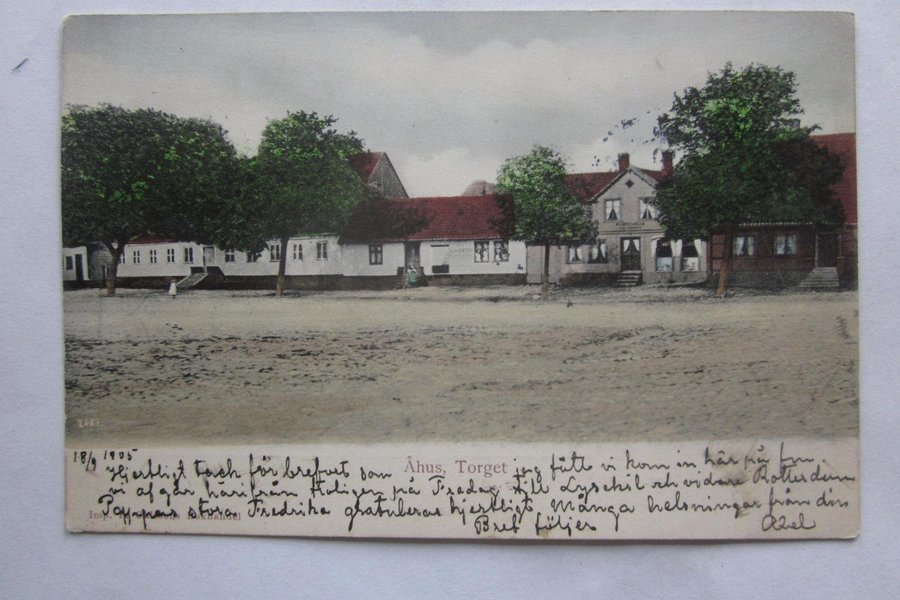 2689
18/9 1905
Åhus, Torget
Hjertligt tack för brefvet som jag fått vi kom in här på fm.
vi afgår härifrån troligen på Fredag till Lysekil och vidare Rotterdam
Pappas stora Fredrika gratuleras hjertligt Många helsningar från din
Imp. Bokhandel
Bref följer Axel